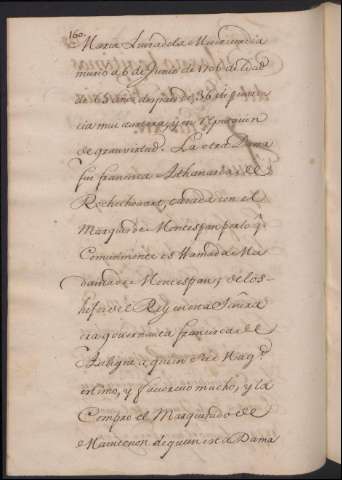 160.
Maria Luisa de la Misericordia
murio a 6 de Junio de 1710 de hedad
de 65 años despues de 36 de peniten
cia mui austera, y en reputacion
de gran virtud. La otra Dama
fue francisca Athanarsia de
Rochechouart, casada con el
Marques de Montespan por lo q̃
Comunmente es llamada Ma
dama de Montespan, y de los
hijos de el Rey en esta Señora
era governanta francisca de
Aubigne a quien este Mag.
estimo, y favorecio mucho, y la
Compro el Marquesado de
Maintenon de quien esta Dama